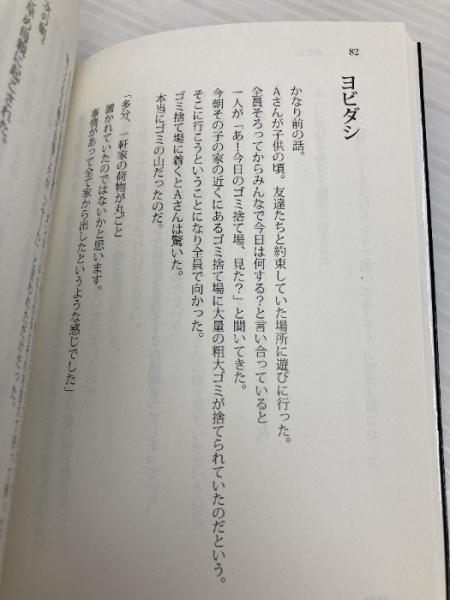 82
ヨビダシ
かなり前の話。
Aさんが子供の頃。友達たちと約束していた場所に遊びに行った。
全員そろってからみんなで今日は何する?と言い合っていると
一人が「あ!今日のゴミ捨て場、見た?」と聞いてきた。
今朝その子の家の近くにあるゴミ捨て場に大量の粗大ゴミが捨てられていたのだという。
そこに行こうということになり全員で向かった。
ゴミ捨て場に着くとAさんは驚いた。
本当にゴミの山だったのだ。
「多分、一軒家の荷物が丸ごと
置かれていたのではないかと思います。
事情があって全て家から出したというような感じでした」